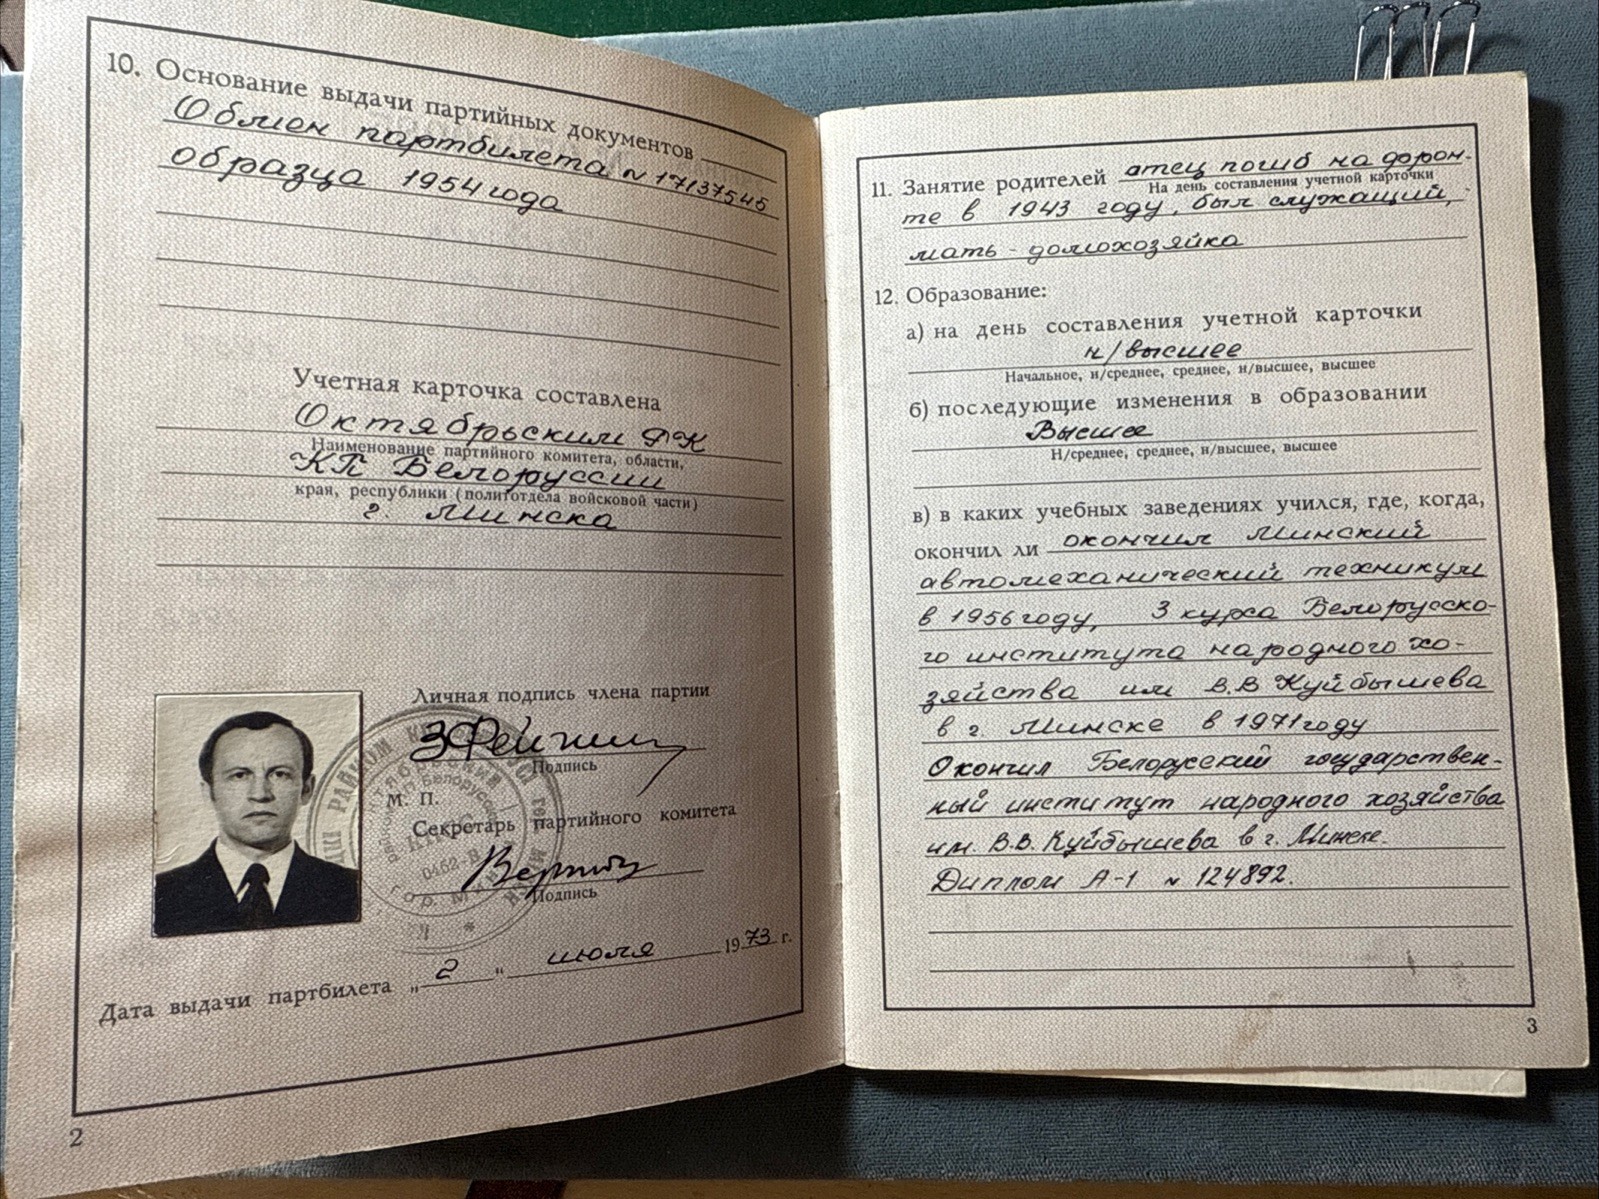 10. Основание выдачи партийных документов
Обмен партбилета № 17137545
образца 1954 года
Учетная карточка составлена
Октябрьским РК
Наименование партийного комитета, области,
КП Белоруссии
края, республики (политотдела войсковой части)
г. Минска
Личная подпись члена партии
Подпись
М. П.
Секретарь партийного комитета
Подпись
Дата выдачи партбилета „2“ июля 1973 г.
2
11. Занятие родителей отец погиб на фрон-
На день составления учетной карточки
те в 1943 году, был служащий,
мать - домохозяйка
12. Образование:
а) на день составления учетной карточки
н/высшее
Начальное, н/среднее, среднее, н/высшее, высшее
б) последующие изменения в образовании
Высшее
Н/среднее, среднее, н/высшее, высшее
в) в каких учебных заведениях учился, где, когда,
окончил ли окончил Минский
автомеханический техникум
в 1956 году, 3 курса Белорусско-
го института народного хо-
зяйства им В.В Куйбышева
в г. Минске в 1971 году
Окончил Белорусский государствен-
ный институт народного хозяйства
им. В.В. Куйбышева в г. Минске.
Диплом А-1 № 124892.
3